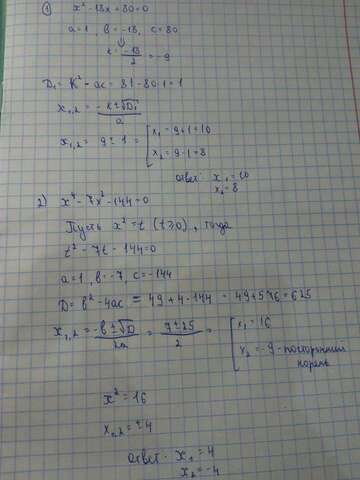 1) x² - 18x + 80 = 0
a = 1, b = -18, c = 80
k = -18/2 = -9
D₁ = k² - ac = 81 - 80·1 = 1
x₁,₂ = -k ± √D₁ / a
x₁,₂ = 9 ± 1 = [ x₁ = 9 + 1 = 10
x₂ = 9 - 1 = 8
Ответ: x₁ = 10
x₂ = 8
2) x⁴ - 7x² - 144 = 0
Пусть x² = t (t ≥ 0), тогда
t² - 7t - 144 = 0
a = 1, b = -7, c = -144
D = b² - 4ac = 49 + 4·144 = 49 + 576 = 625
x₁,₂ = -b ± √D / 2a = 7 ± 25 / 2 = [ x₁ = 16
x₂ = -9 - посторонний
корень
x² = 16
x₁,₂ = ±4
Ответ: x₁ = 4
x₂ = -4